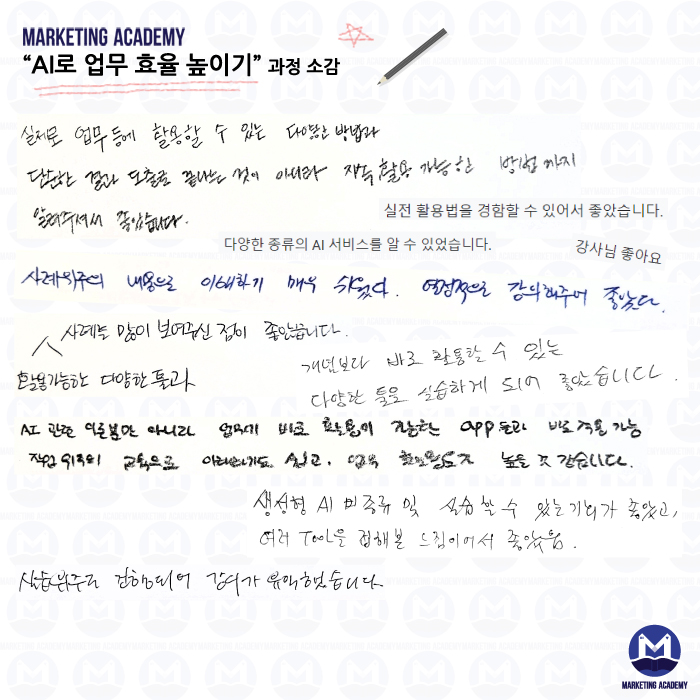 MARKETING ACADEMY
“AI로 업무 효율 높이기” 과정 소감
실제로 업무 등에 활용할 수 있는 다양한 방법과
단순한 결과 도출로 끝나는 것이 아니라 지속 활용 가능한 방법까지
알려주셔서 좋았습니다.
실전 활용법을 경함할 수 있어서 좋았습니다.
다양한 종류의 AI 서비스를 알 수 있었습니다.
강사님 좋아요
사례위주의 내용으로 이해하기 매우 쉬웠다. 열정적으로 강의해주어 좋았다.
사례를 많이 보여주신 점이 좋았습니다.
활용가능한 다양한 툴과
개념보다 바로 활용할 수 있는
다양한 툴로 실습하게 되어 좋았습니다.
AI 관련 이론뿐만 아니라 업무에 바로 활용이 가능한 app들과 바로 적용 가능
작업 위주의 교육으로 이해하기도 쉽고, 업무 활용도도 높을 것 같습니다.
생성형 AI 의 종류 및 실습할 수 있는 기회가 좋았고,
여러 Tool을 접해본 느낌이어서 좋았음.
실습위주로 진행되어 강의가 유익했습니다
MARKETING ACADEMY